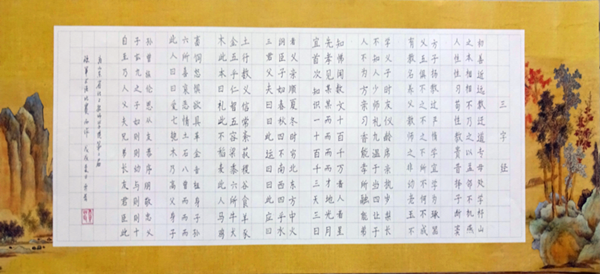 三字经
人之初
性本善
性相近
习相远
苟不教
性乃迁
教之道
贵以专
昔孟母
择邻处
子不学
断机杼
窦燕山
有义方
教五子
名俱扬
养不教
父之过
教不严
师之惰
子不学
非所宜
幼不学
老何为
玉不琢
不成器
人不学
不知义
为人子
方少时
亲师友
习礼仪
香九龄
能温席
孝于亲
所当执
融四岁
能让梨
弟于长
宜先知
首孝悌
次见闻
知某数
识某文
一而十
十而百
百而千
千而万
三才者
天地人
三光者
日月星
三纲者
君臣义
父子亲
夫妇顺
曰春夏
曰秋冬
此四时
运不穷
曰南北
曰西东
此四方
应乎中
曰水火
木金土
此五行
本乎数
曰仁义
礼智信
此五常
不容紊
稻粱菽
麦黍稷
此六谷
人所食
马牛羊
鸡犬豕
此六畜
人所饲
曰喜怒
曰哀惧
爱恶欲
七情具
匏土革
木石金
丝与竹
乃八音
高曾祖
父而身
身而子
子而孙
自子孙
至玄曾
乃九族
人之伦
父子恩
夫妇从
兄则友
弟则恭
长幼序
友与朋
君则敬
臣则忠
此十义